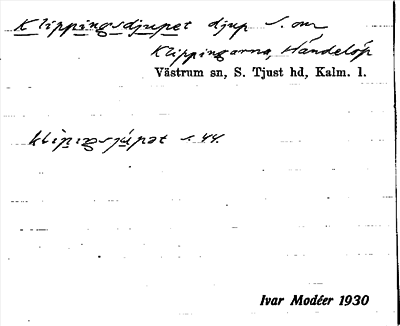 Klippingsdjupet djup S. om
Klippingarna, Händelöp
Västrum sn, S. Tjust hd, Kalm. l.
klìpiŋsjúpət s. 44.
Ivar Modéer 1930